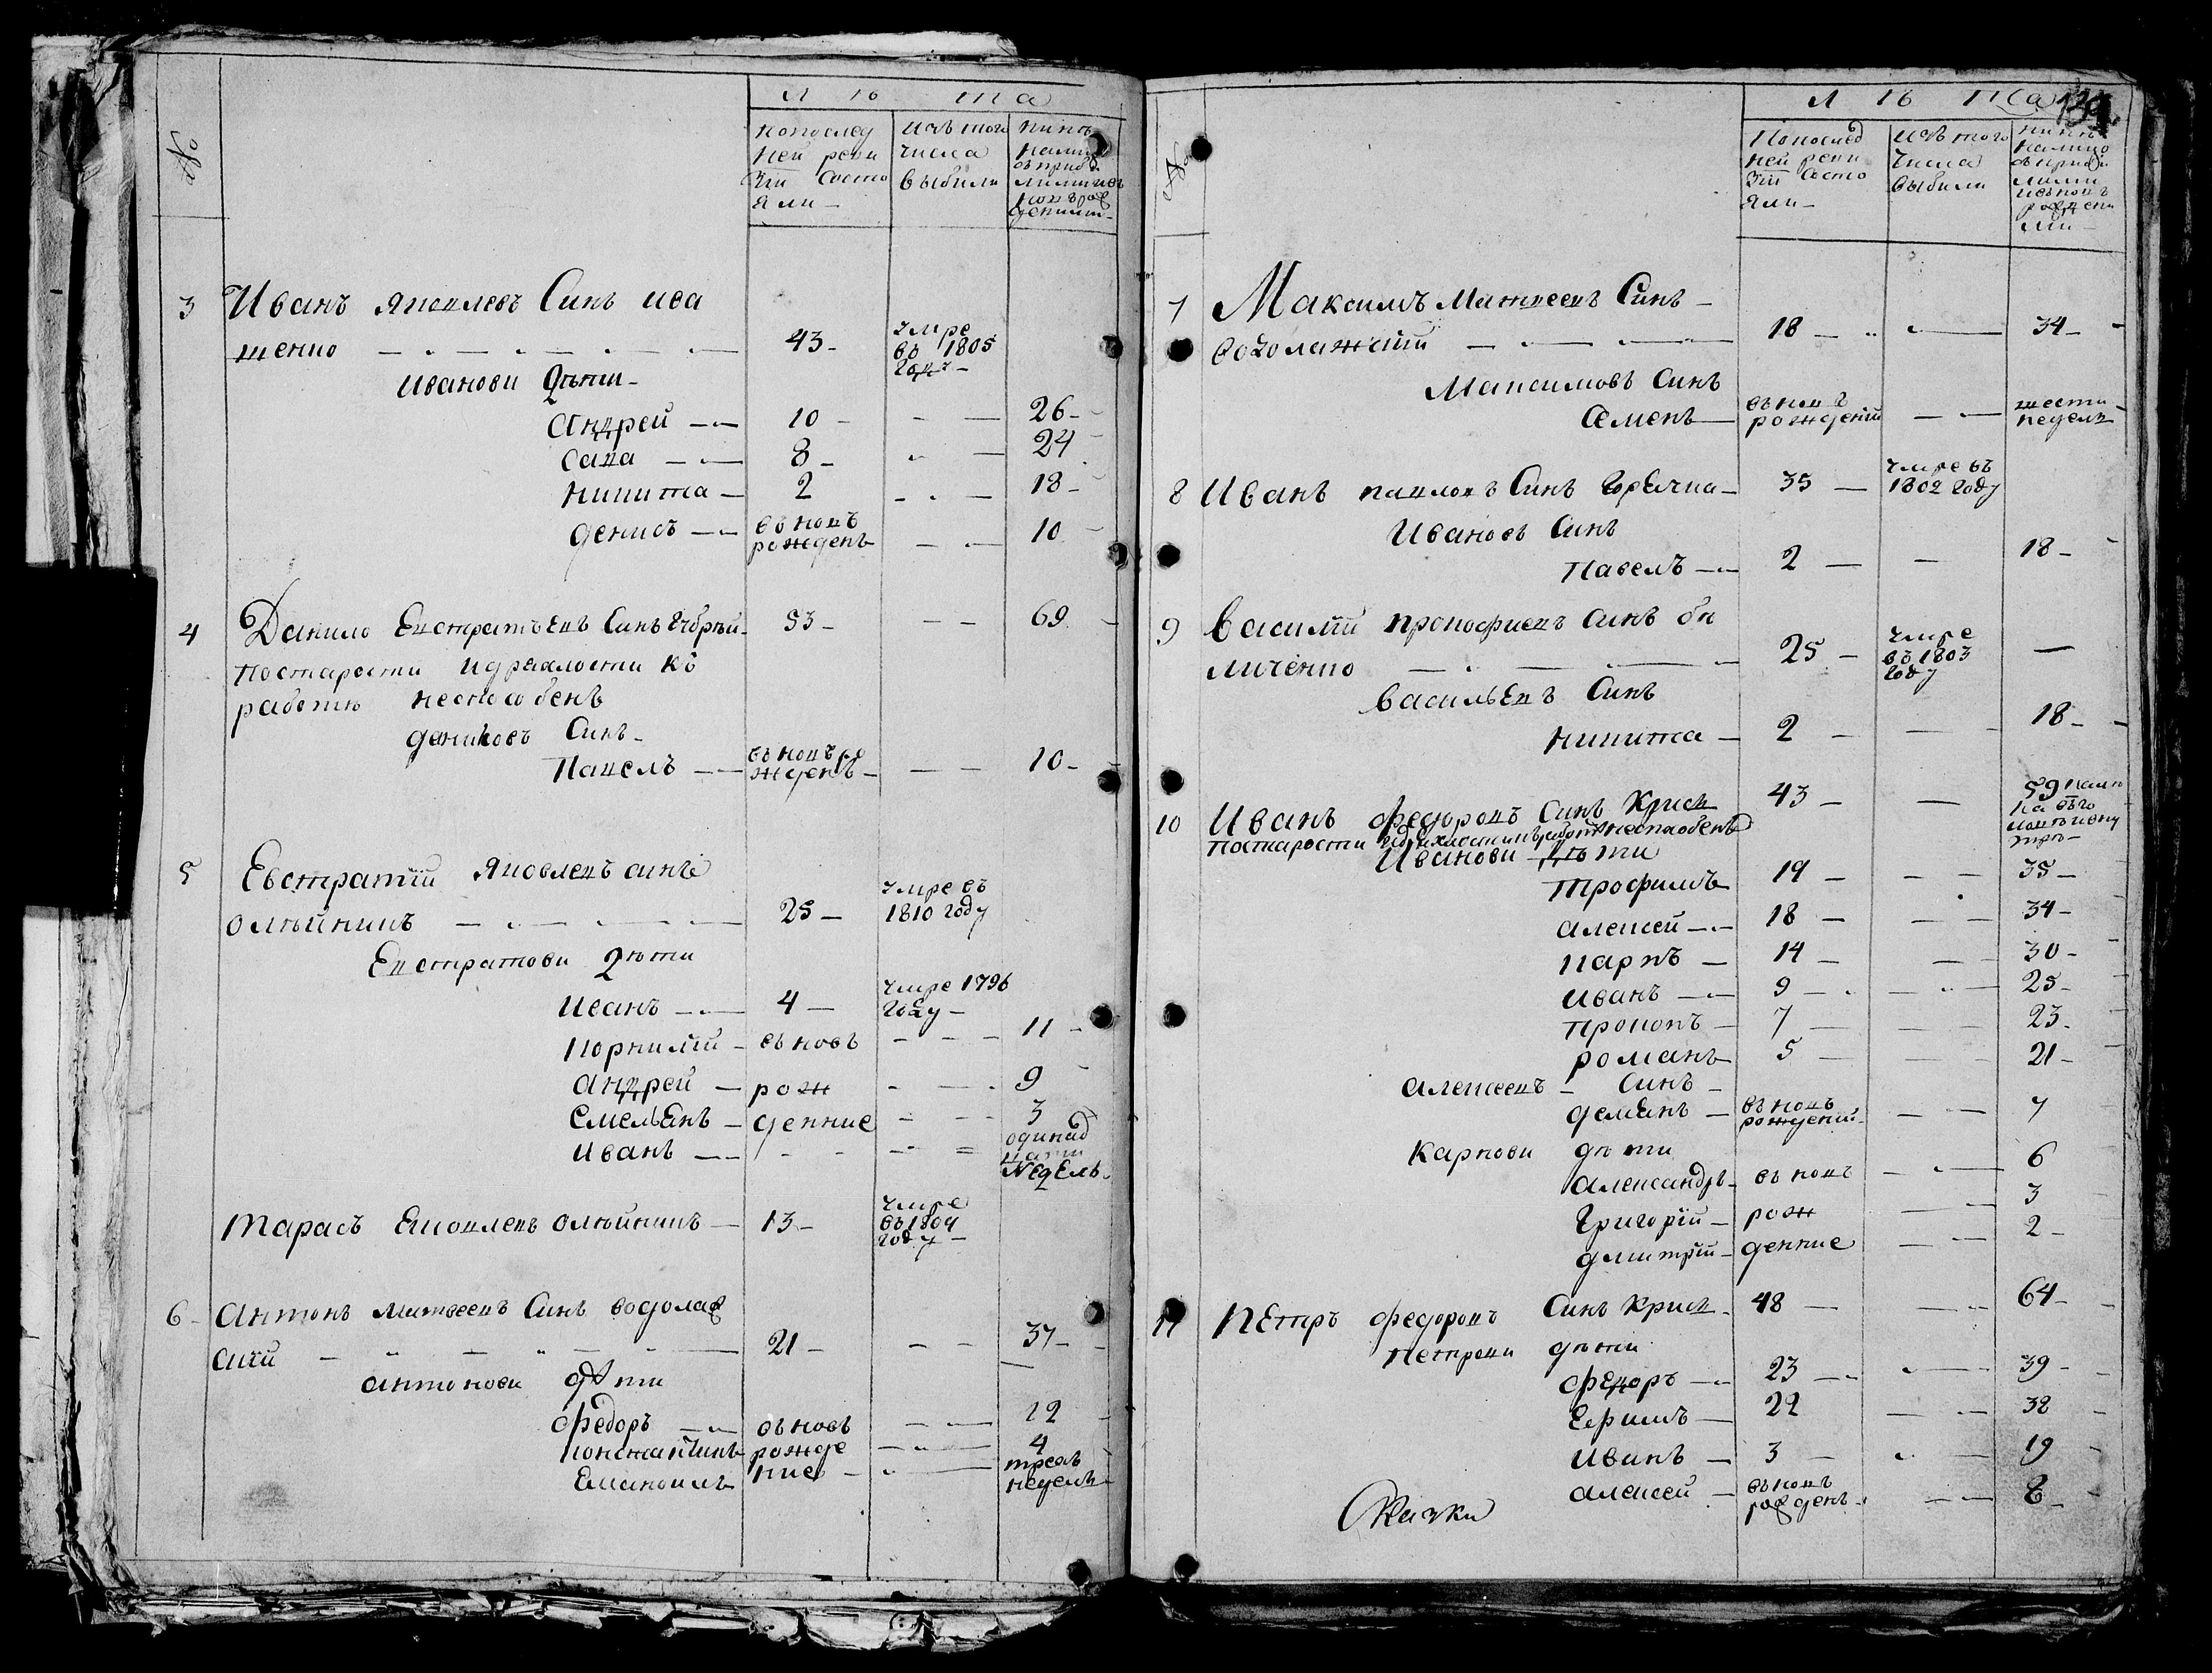 №
Лѣта
Попослед
ней реви
зіи состо
яли —
Изъ того
числа
выбили
3 Иванъ Яковлевъ Синъ ива
щенко — 43 — умре
въ 1805
году —
Иванови дѣти —
андрей — 10 — 26 —
сава — 8 — 24
никита — 2 — 18 —
денисъ — въ новъ
рожденъ — 10
4 Данило Евстратъевъ Синъ 53 — 69
Постарости идряхлости къ
работѣ неспособенъ
даниловъ Синъ —
Павелъ — въ новъ ро
жденъ — 10 —
5 Евстратій Яковлевъ синъ
олѣйникъ — 25 — умре въ
1810 году
Евстратови дѣти
Иванъ — 4 — умре 1796
году —
Корнилій — въ новъ — 11 —
андрей — рож — 9
Емельянъ — денние — 3
иванъ — одинад
цати
недель.
Тарасъ Яковлевъ олѣйникъ — 13 — умре
въ 1804
году —
6 — Антонъ Матвеевъ Синъ водолаж
скій — 21 — 37 —
антонови дѣти
федоръ — въ новъ — 12
константинъ — рожде — 4
Емануилъ — ние — трехъ
недель
№
Лѣта
139.
Попослед
ней реви
зіи состо
яли —
Изъ того
числа
выбили
7 Максимъ Матвеевъ Синъ —
водолажскій — 18 — 34 —
Максимовъ синъ
семенъ — въ новъ
рожденій — шести
недель
8 Иванъ павловъ Синъ Горелка — 35 — умре въ
1802 году
Ивановъ Синъ
Павелъ — 2 — 18 —
9 Василій прокофиевъ синъ би
личенко — 25 — умре
въ 1803
году
васильевъ Синъ
никита — 2 — 18 —
10 Иванъ федоровъ Синъ Крися 43 — 59
Постарости идряхлости неспособенъ
Иванови дѣти
Трофимъ — 19 — 35 —
алексей — 18 — 34 —
карпъ — 14 — 30 —
иванъ — 9 — 25 —
прокопъ — 7 — 23 —
романъ — 5 — 21 —
алексеевъ — синъ —
демянъ — въ новъ
рожденій — 7
Карпови дѣти
александръ — въ новъ — 6
Григорій — рож — 3
дмитрій — денние — 2 —
11 Петръ федоровъ Синъ Крися — 48 — 64 —
петрови дѣти
федоръ — 23 — 39 —
Ефимъ — 22 — 38
иванъ — 3 — 19 —
алексей — въ новъ
рожденъ — 8 —
Сказки